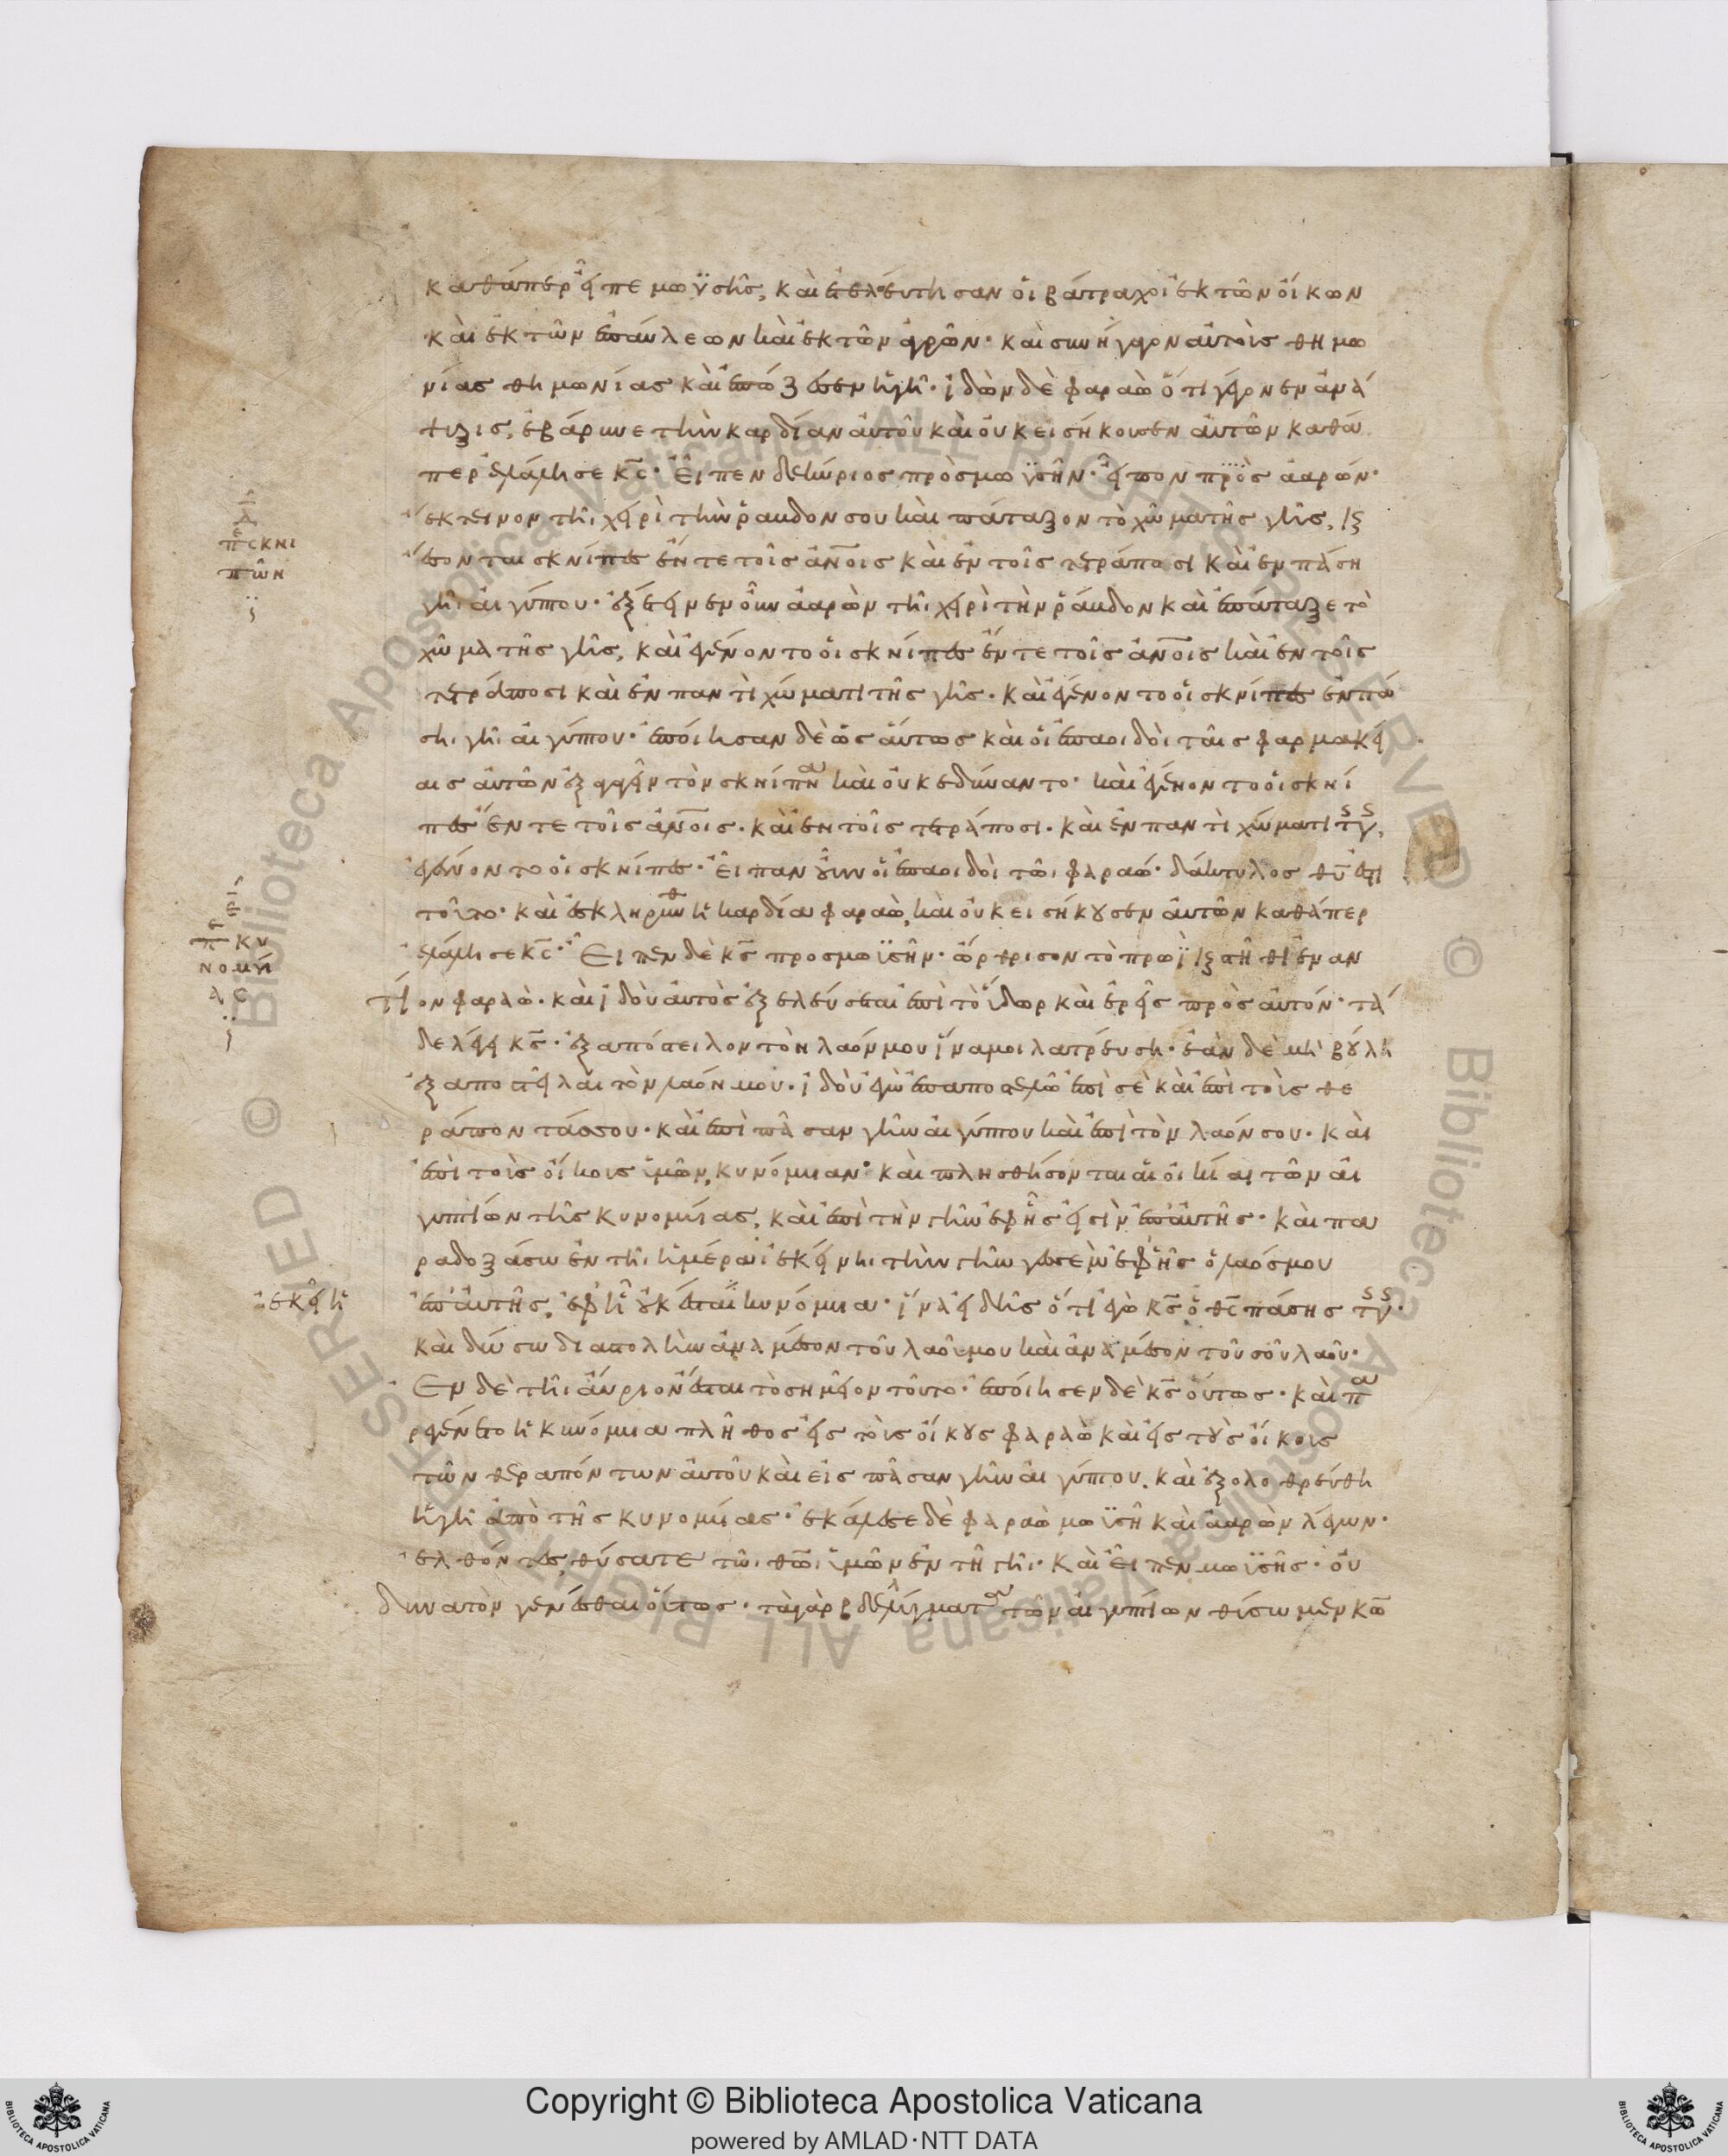 καθάπερ εἶπε μωϋσῆς, καὶ ἐτελεύτησαν οἱ βάτραχοι ἐκ τῶν οἴκων
καὶ ἐκ τῶν ἐπαύλεων καὶ ἐκ τῶν ἀγρῶν· καὶ συνήγαγον αὐτοὺς θημω
νίας θημωνίας καὶ ἐπώζεσεν ἡ γῆ· ἰδὼν δὲ φαραὼ ὅτι γέγονεν ἀνά
ψυξις, ἐβάρυνε τὴν καρδίαν αὐτοῦ καὶ οὐκ εἰσήκουσεν αὐτῶν καθά
περ ἐλάλησε κ̅ς̅· Εἶπεν δὲ κύριος πρὸς μωϋσῆν· εἶπον πρὸς ἀαρών·
ἔκτεινον τῆι χειρὶ τὴν ῥάβδον σου καὶ πάταξον τὸ χῶμα τῆς γῆς, κ̀
ἔσονται σκνίπες ἔν τε τοῖς ἀν̅οις καὶ ἐν τοῖς τετράποσι καὶ ἐν πάση
γῆι αἰγύπτου· ἐξέτεινεν οὖν ἀαρὼν τῆι χειρὶ τὴν ῥάβδον καὶ ἐπάταξε τὸ
χῶμα τῆς γῆς, καὶ ἐγένοντο οἱ σκνίπες ἔν τε τοῖς ἀν̅οις καὶ ἐν τοῖς
τετράποσι καὶ ἐν παντὶ χώματι τῆς γῆς· καὶ ἐγένοντο οἱ σκνίπες ἐν πά
σηι γῆι αἰγύπτου· ἐποίησαν δὲ ὡσαύτως καὶ οἱ ἐπαοιδοὶ ταῖς φαρμακεί
αις αὐτῶν ἐξαγαγεῖν τὸν σκνίπα καὶ οὐκ εδύναντο· καὶ ἐγένοντο οἱ σκνί
πες ἔν τε τοῖς ἀν̅οις· καὶ ἐν τοῖς τετράποσι· καὶ ἐν παντὶ χώματι τ̅ς γ̅ς,
ἐγένοντο οἱ σκνίπες· εἶπαν οὖν οἱ ἐπαοιδοὶ τῶι φαραώ· δάκτυλος θ̅υ̅ ἐστι
τοῦτο· καὶ ἐσκληρύνθη ἡ καρδία φαραὼ, καὶ οὐκ εισήκουσεν αὐτῶν καθάπερ
ἐλάλησε κ̅ς̅· Εἶπεν δὲ κ̅ς̅ προς μωϋσῆν· ὄρθρισον τὸ πρωῒ κ̀ στῆθι ἐναν
τίον φαραώ· καὶ ἰδοὺ αὐτὸς ἐξελεύσεται ἐπὶ τὸ ὕδωρ καὶ ἐρεῖς πρὸς αὐτόν· τά
δε λέγει κ̅ς̅· ἐξαπόστειλον τὸν λαόν μου ἵνα μοι λατρεύση· ἐὰν δὲ μὴ βούλη
ἐξαποστεῖλαι τὸν λαόν μου· ἰδοὺ ἐγὼ ἐπαποστελῶ ἐπὶ σὲ καὶ ἐπὶ τοὺς θε
ράποντάς σου· καὶ ἐπὶ πᾶσαν γῆν αἰγύπτου καὶ ἐπὶ τὸν λαόν σου· καὶ
ἐπὶ τοὺς οἴκους ὑμῶν, κυνόμυιαν· καὶ πλησθήσονται αἱ οἰκίαι τῶν αἰ
γυπτίων τῆς κυνομυίας, καὶ ἐπὶ τὴν γῆν ἐφ ῆς εἰσὶν ἐπ αὐτῆς· καὶ πα
ραδοξάσω ἐν τῆι ἡμέραι ἐκείνηι τὴν γῆν γεσεὶμ ἐφ ῆς ὁ λαός μου
ἐπ αὐτῆς, ἐφ ἧ οὐκ ἔσται κυνόμυια· ἵνα εἰδῆς ὅτι ἐγὼ κ̅ς̅ ὁ θ̅ς̅ πάσης τ̅ς γ̅ς·
καὶ δώσω διαστολὴν ἀνὰ μέσον τοῦ λαοῦ μου καὶ ἀνὰ μέσον τοῦ σοῦ λαοῦ·
Εν δὲ τῆι αὔριον ἔσται τὸ σημεῖον τοῦτο· ἐποίησεν δὲ κ̅ς̅ οὕτως· καὶ πα
ρεγένετο ἡ κυνόμυια πλῆθος εἰς τοὺς οἴκους φαραὼ καὶ εἰς τοὺς οἴκους
τῶν θεραπόντων αὐτοῦ καὶ εἰς πᾶσαν γῆν αἰγύπτου. καὶ ἐξολοθρεύθη
ἡ γῆ ἀπὸ τῆς κυνομυίας· ἐκάλεσε δὲ φαραὼ μωϋσῆ καὶ ἀαρὼν λέγων·
ἐλθόντες, θύσατε τῶι θ̅ω̅ι ὑμῶν ἐν τῆ γῆι· καὶ εἶπεν μωϋσῆς· οὐ
δυνατὸν γενέσθαι οὕτως· τὰ γὰρ βδελύγματα τῶν αἰγυπτίων θύσωμεν κ̅ω̅
πε σκνι
πῶν
κυ
νομυι
ας
ἐκεῖ ἡ
Copyright © Biblioteca Apostolica Vaticana
powered by AMLAD·NTT DATA